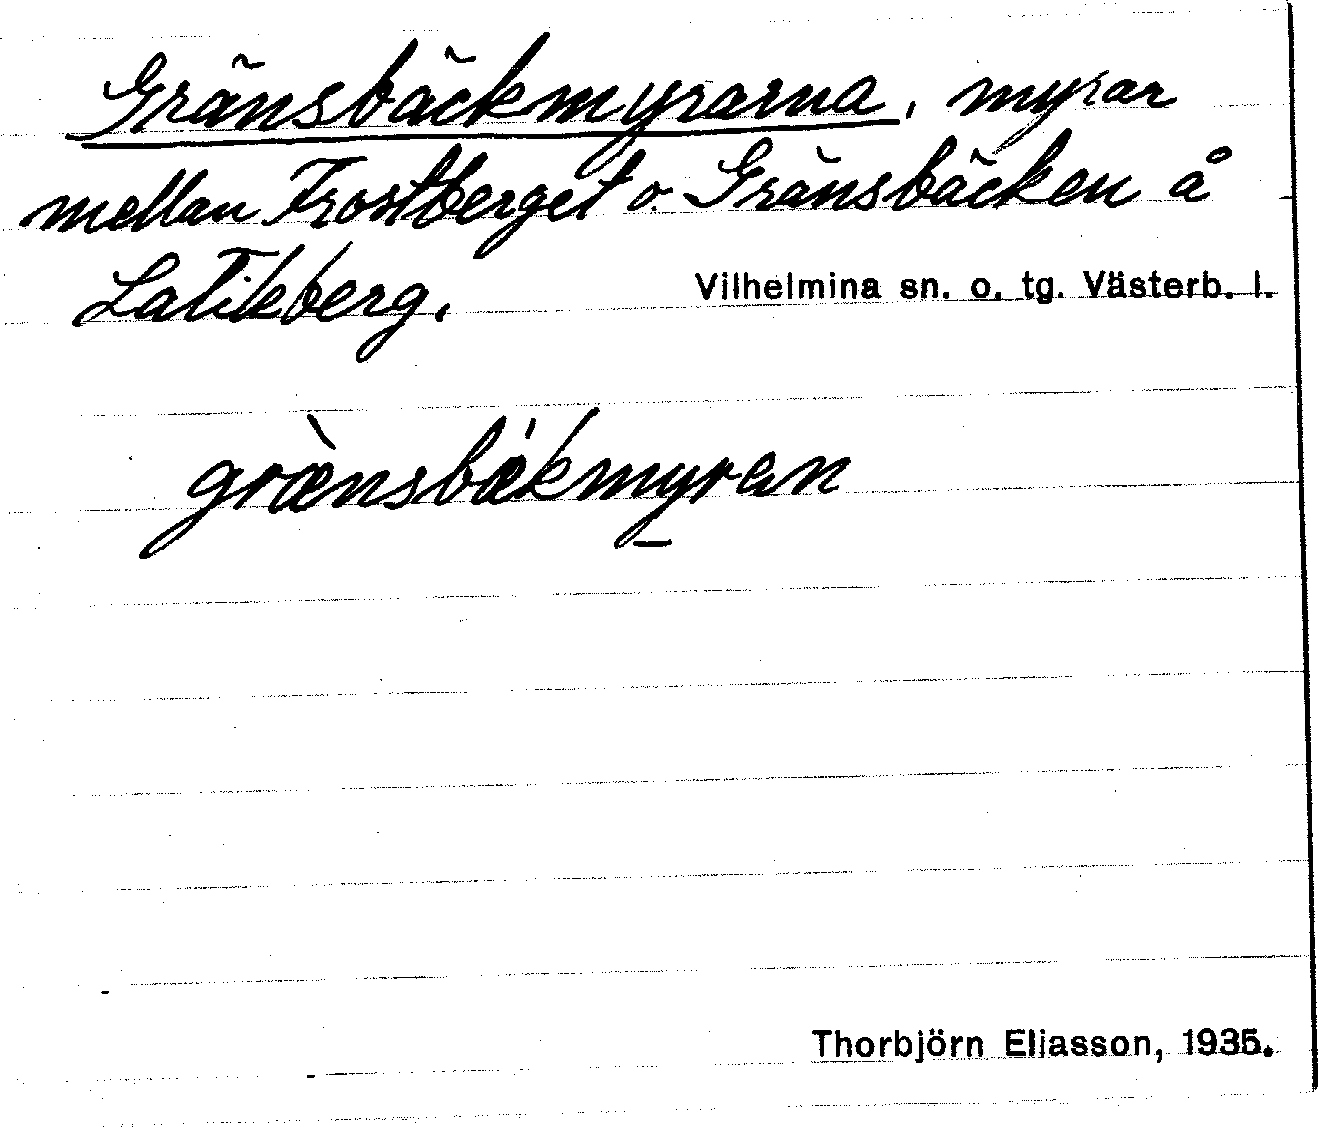 Gränsbäckmyrarna, myrar
mellan Frostberget o. Gränsbäcken å
Latikberg.
Vilhelmina sn. o. tg. Västerb. l.
græ̀nsbǽkmyran
Thorbjörn Eliasson, 1935.